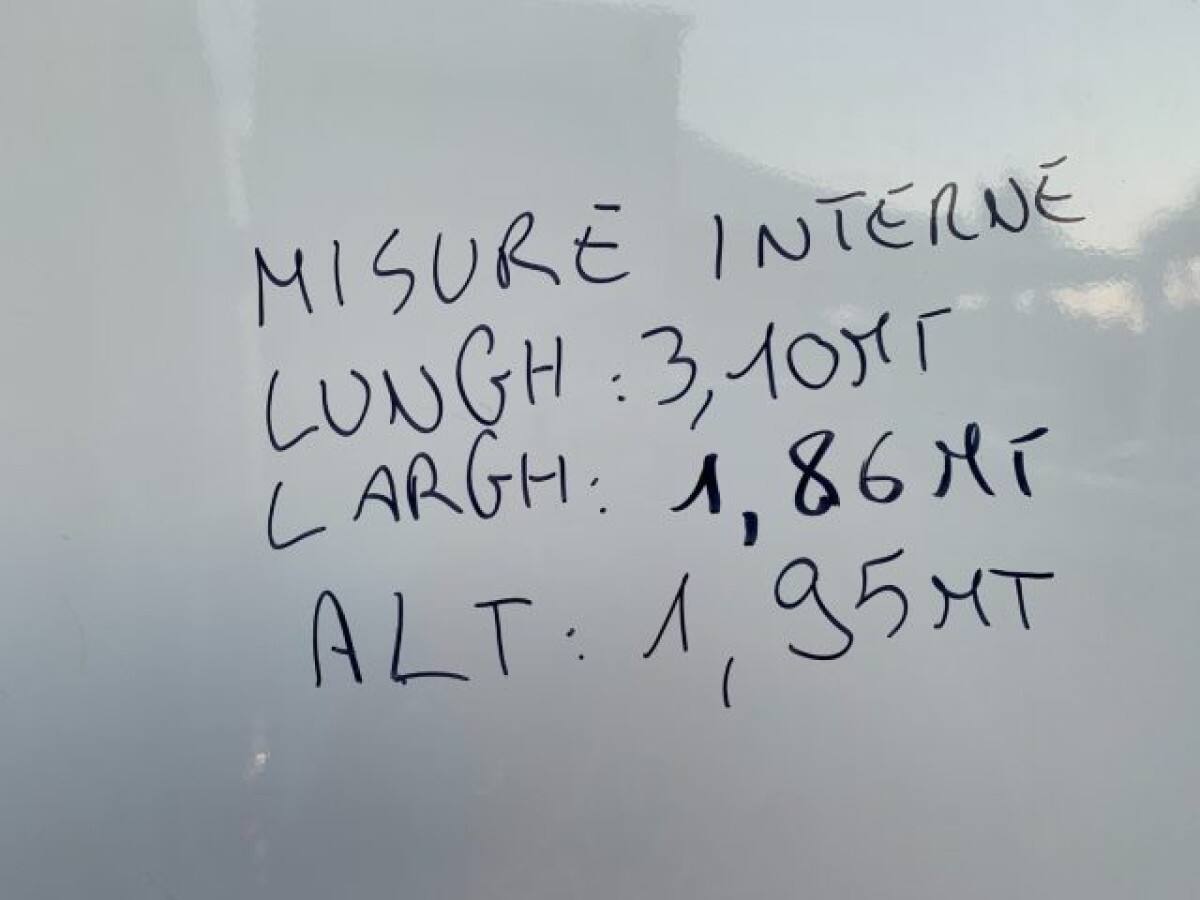 MISURE INTERNE
LUNGH: 3,10MT
LARGH: 1,86MT
ALT: 1,95MT